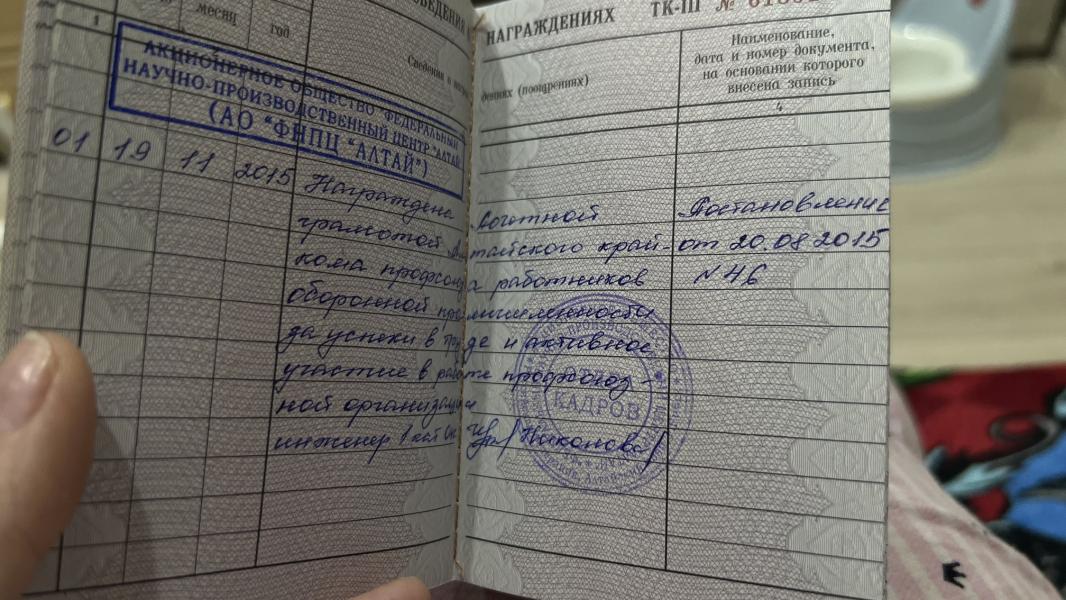 НАГРАЖДЕНИЯХ ТК-III №
месяц
год
Сведения о
дениях (поощрениях)
Наименование,
дата и номер документа,
на основании которого
внесена запись
1
4
АКЦИОНЕРНОЕ ОБЩЕСТВО "ФЕДЕРАЛЬНЫЙ
НАУЧНО-ПРОИЗВОДСТВЕННЫЙ ЦЕНТР "АЛТАЙ"
(АО "ФНПЦ "АЛТАЙ")
01 19 11 2015 Награждена Почетной Постановление
грамотой Алтайского край- от 20.08.2015
кома профсоюза работников №46
оборонной промышленности
за успехи в труде и активное
участие в работе профсоюз-
ной организации
инженер 1 кат /Николова/
КАДРОВ